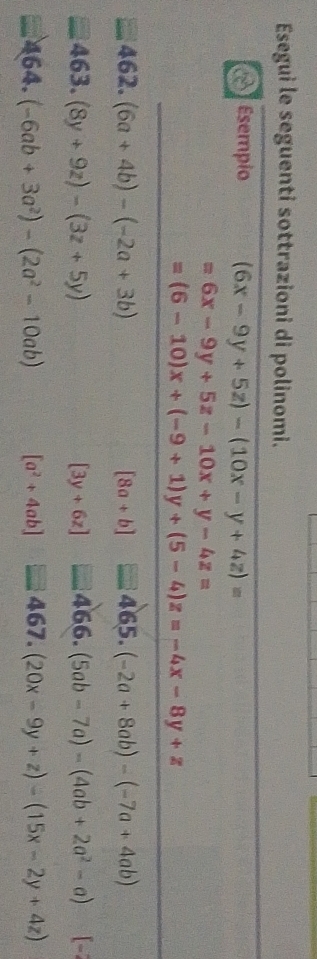 Esegui le seguenti sottrazioni di polinomi.
Esempio (6x − 9y + 5z) − (10x − y + 4z) =
= 6x − 9y + 5z − 10x + y − 4z =
= (6 − 10)x + (−9 + 1)y + (5 − 4)z = −4x − 8y + z
462. (6a + 4b) − (−2a + 3b) [8a + b]
463. (8y + 9z) − (3z + 5y) [3y + 6z]
464. (−6ab + 3a²) − (2a² − 10ab) [a² + 4ab]
465. (−2a + 8ab) − (−7a + 4ab)
466. (5ab − 7a) − (4ab + 2a² − a)
467. (20x − 9y + z) − (15x − 2y + 4z)